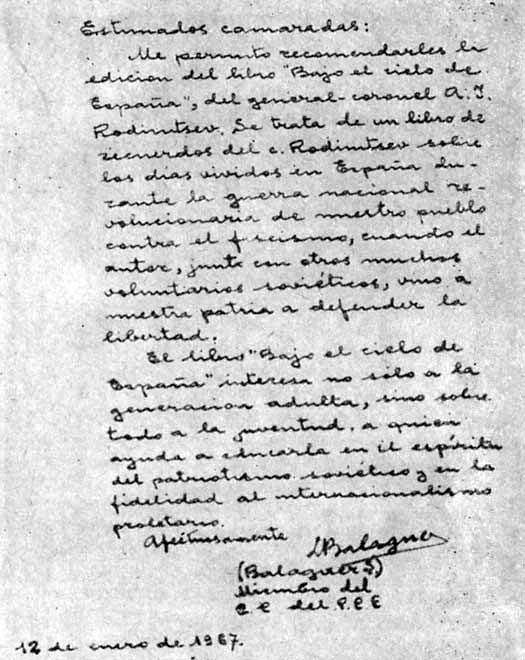 Estimados camaradas:
Me permito recomendarles la
edicion del libro "Bajo el cielo de
España", del general-coronel A. I.
Rodimtsev. Se trata de un libro de
recuerdos del c. Rodimtsev sobre
los dias vividos en España du-
rante la guerra nacional re-
volucionaria de nuestro pueblo
contra el fascismo, cuando el
autor, junto con otros muchos
voluntarios soviéticos, vino a
nuestra patria a defender la
libertad.
El libro "Bajo el cielo de
España" interesa no sólo a la
generacion adulta, sino sobre
todo a la juventud, a quien
ayuda a educarla en el espíritu
del patriotismo soviético y en la
fidelidad al internacionalismo
proletario.
Afectuosamente
Balaguer
(Balaguer S.)
Miembro del
C.C. del P.C.E
12 de enero de 1967.